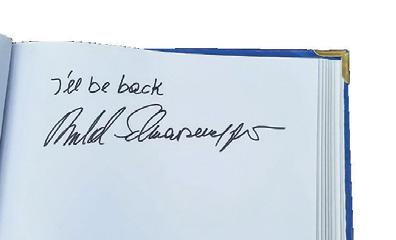 I'll be back
Arnold Schwarzenegger